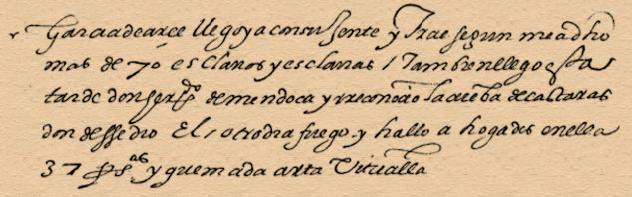 Garciadearce llegoya consu gente y Trae segun meadho
mas de 70 esclauos y esclauas / Tambien llego esta
tarde don fer.do demendoca y rreconocio la cueba decastaras
don dessedio El otrodia fuego y hallo ahogados enella
37 pers.as y quemada arta Vitualla